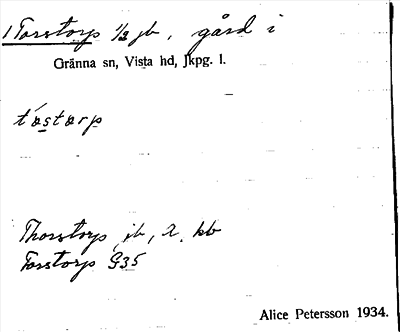 1 Torstorp 1/2 jb, gård i
Gränna sn, Vista hd, Jkpg. l.
tåstarp
Thorstorp jb, 2, kb
Torstorp G35
Alice Petersson 1934.